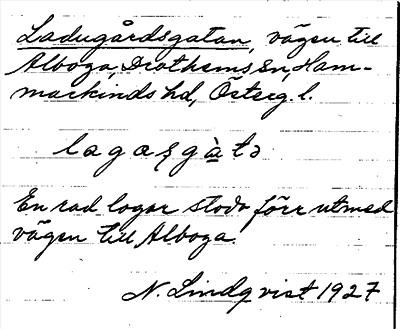 Ladugårdsgatan, vägen till
Alboga, Drothems sn, Ham-
markinds hd, Österg. l.
lagaʂgàtə
En rad logar stodo förr utmed
vägen till Alboga.
N. Lindqvist 1927